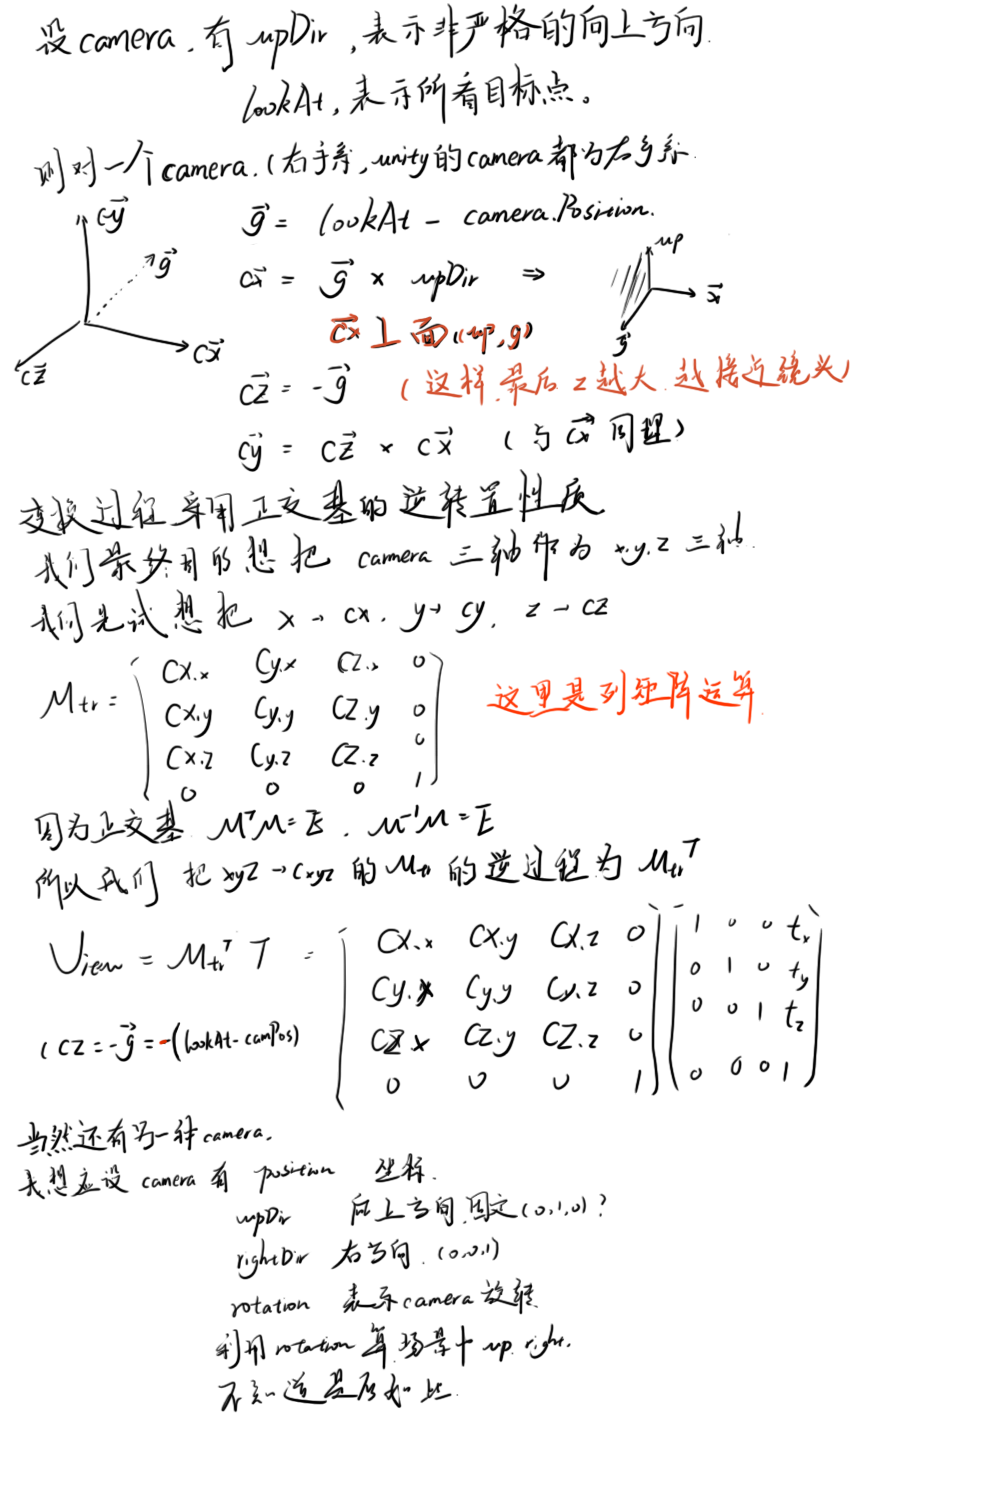 设camera.有 upDir,表示非严格的向上方向.
lookAt,表示所看目标点。
则对一个camera.(右手系,unity的camera都为右手系.
cy g cx cz
g = lookAt - camera.Position.
cx = g × upDir ⇒
up x g
cx⊥面(up,g)
cz = -g (这样最后z越大越接近镜头)
cy = cz × cx (与cx同理)
变换过程采用正交基的逆转置性质
我们最终目的想把 camera 三轴作为 x.y.z 三轴.
我们先试想把 x→cx. y→cy. z→cz
Mtr = 这里是列矩阵运算.
Cx.x Cy.x Cz.x 0
Cx.y Cy.y Cz.y 0
Cx.z Cy.z Cz.z 0
0 0 0 1
因为正交基 MᵀM=E. M⁻¹M=E
所以我们 把xyz→Cxyz 的Mtr 的逆过程为 Mtrᵀ
View = Mtrᵀ T =
Cx.x Cx.y Cx.z 0 1 0 0 tx
Cy.x Cy.y Cy.z 0 0 1 0 ty
Cz.x Cz.y Cz.z 0 0 0 1 tz
0 0 0 1 0 0 0 1
(CZ=-g=-(lookAt-camPos)
当然还有另一种camera.
我想应设 camera 有 position 坐标.
upDir 向上方向.固定(0,1,0)?
rightDir 右方向.(0,0,1)
rotation 表示camera旋转
利用rotation算场景中 up.right.
不知道是否如此.